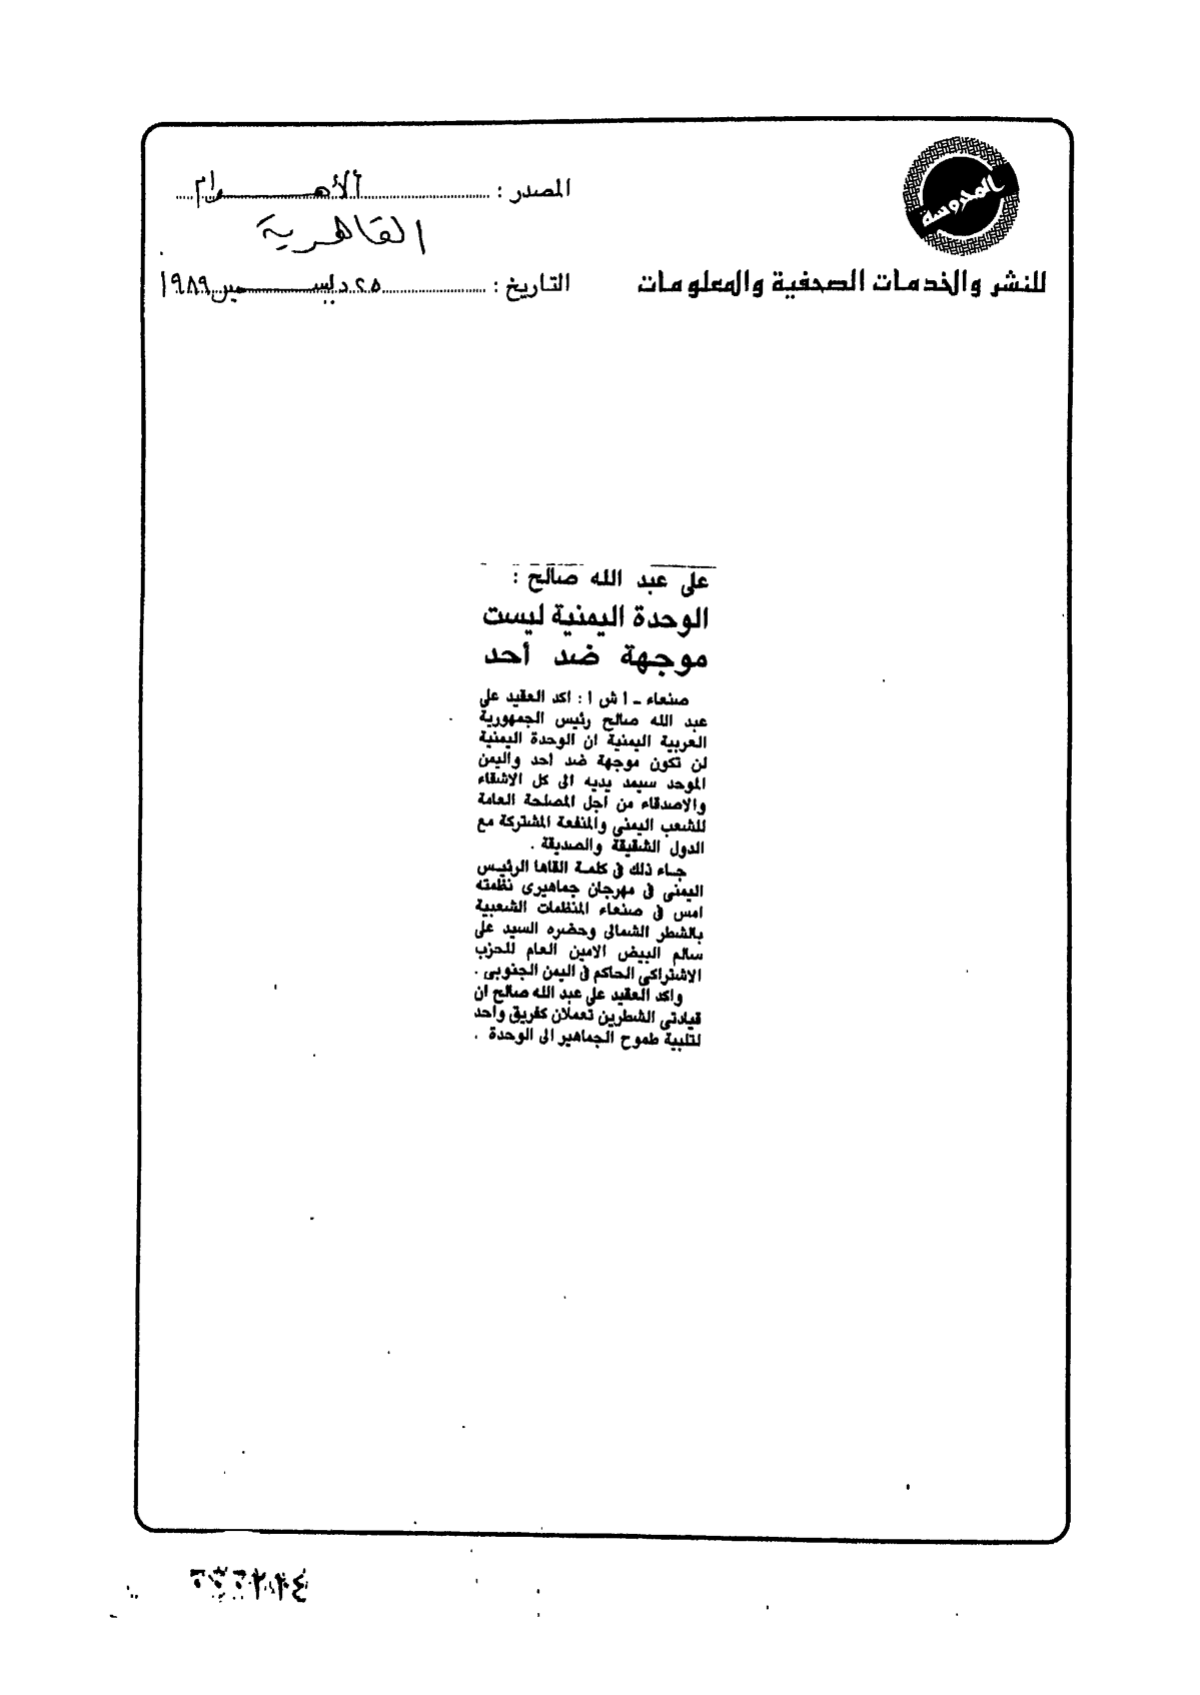 المحروسة
للنشر والخدمات الصحفية والمعلومات
المصدر : الأهـــــرام
القاهرية
التاريخ : ٢٥ ديسـمبر ١٩٨٩
على عبد الله صالح :
الوحدة اليمنية ليست
موجهة ضد أحد
صنعاء ـ ا ش ا : اكد العقيد على
عبد الله صالح رئيس الجمهورية
العربية اليمنية ان الوحدة اليمنية
لن تكون موجهة ضد احد واليمن
الموحد سيمد يديه الى كل الاشقاء
والاصدقاء من اجل المصلحة العامة
للشعب اليمنى والمنفعة المشتركة مع
الدول الشقيقة والصديقة .
جاء ذلك فى كلمة القاها الرئيس
اليمنى فى مهرجان جماهيرى نظمته
امس فى صنعاء المنظمات الشعبية
بالشطر الشمالى وحضره السيد على
سالم البيض الامين العام للحزب
الاشتراكى الحاكم فى اليمن الجنوبى .
واكد العقيد على عبد الله صالح ان
قيادتى الشطرين تعملان كفريق واحد
لتلبية طموح الجماهير الى الوحدة .